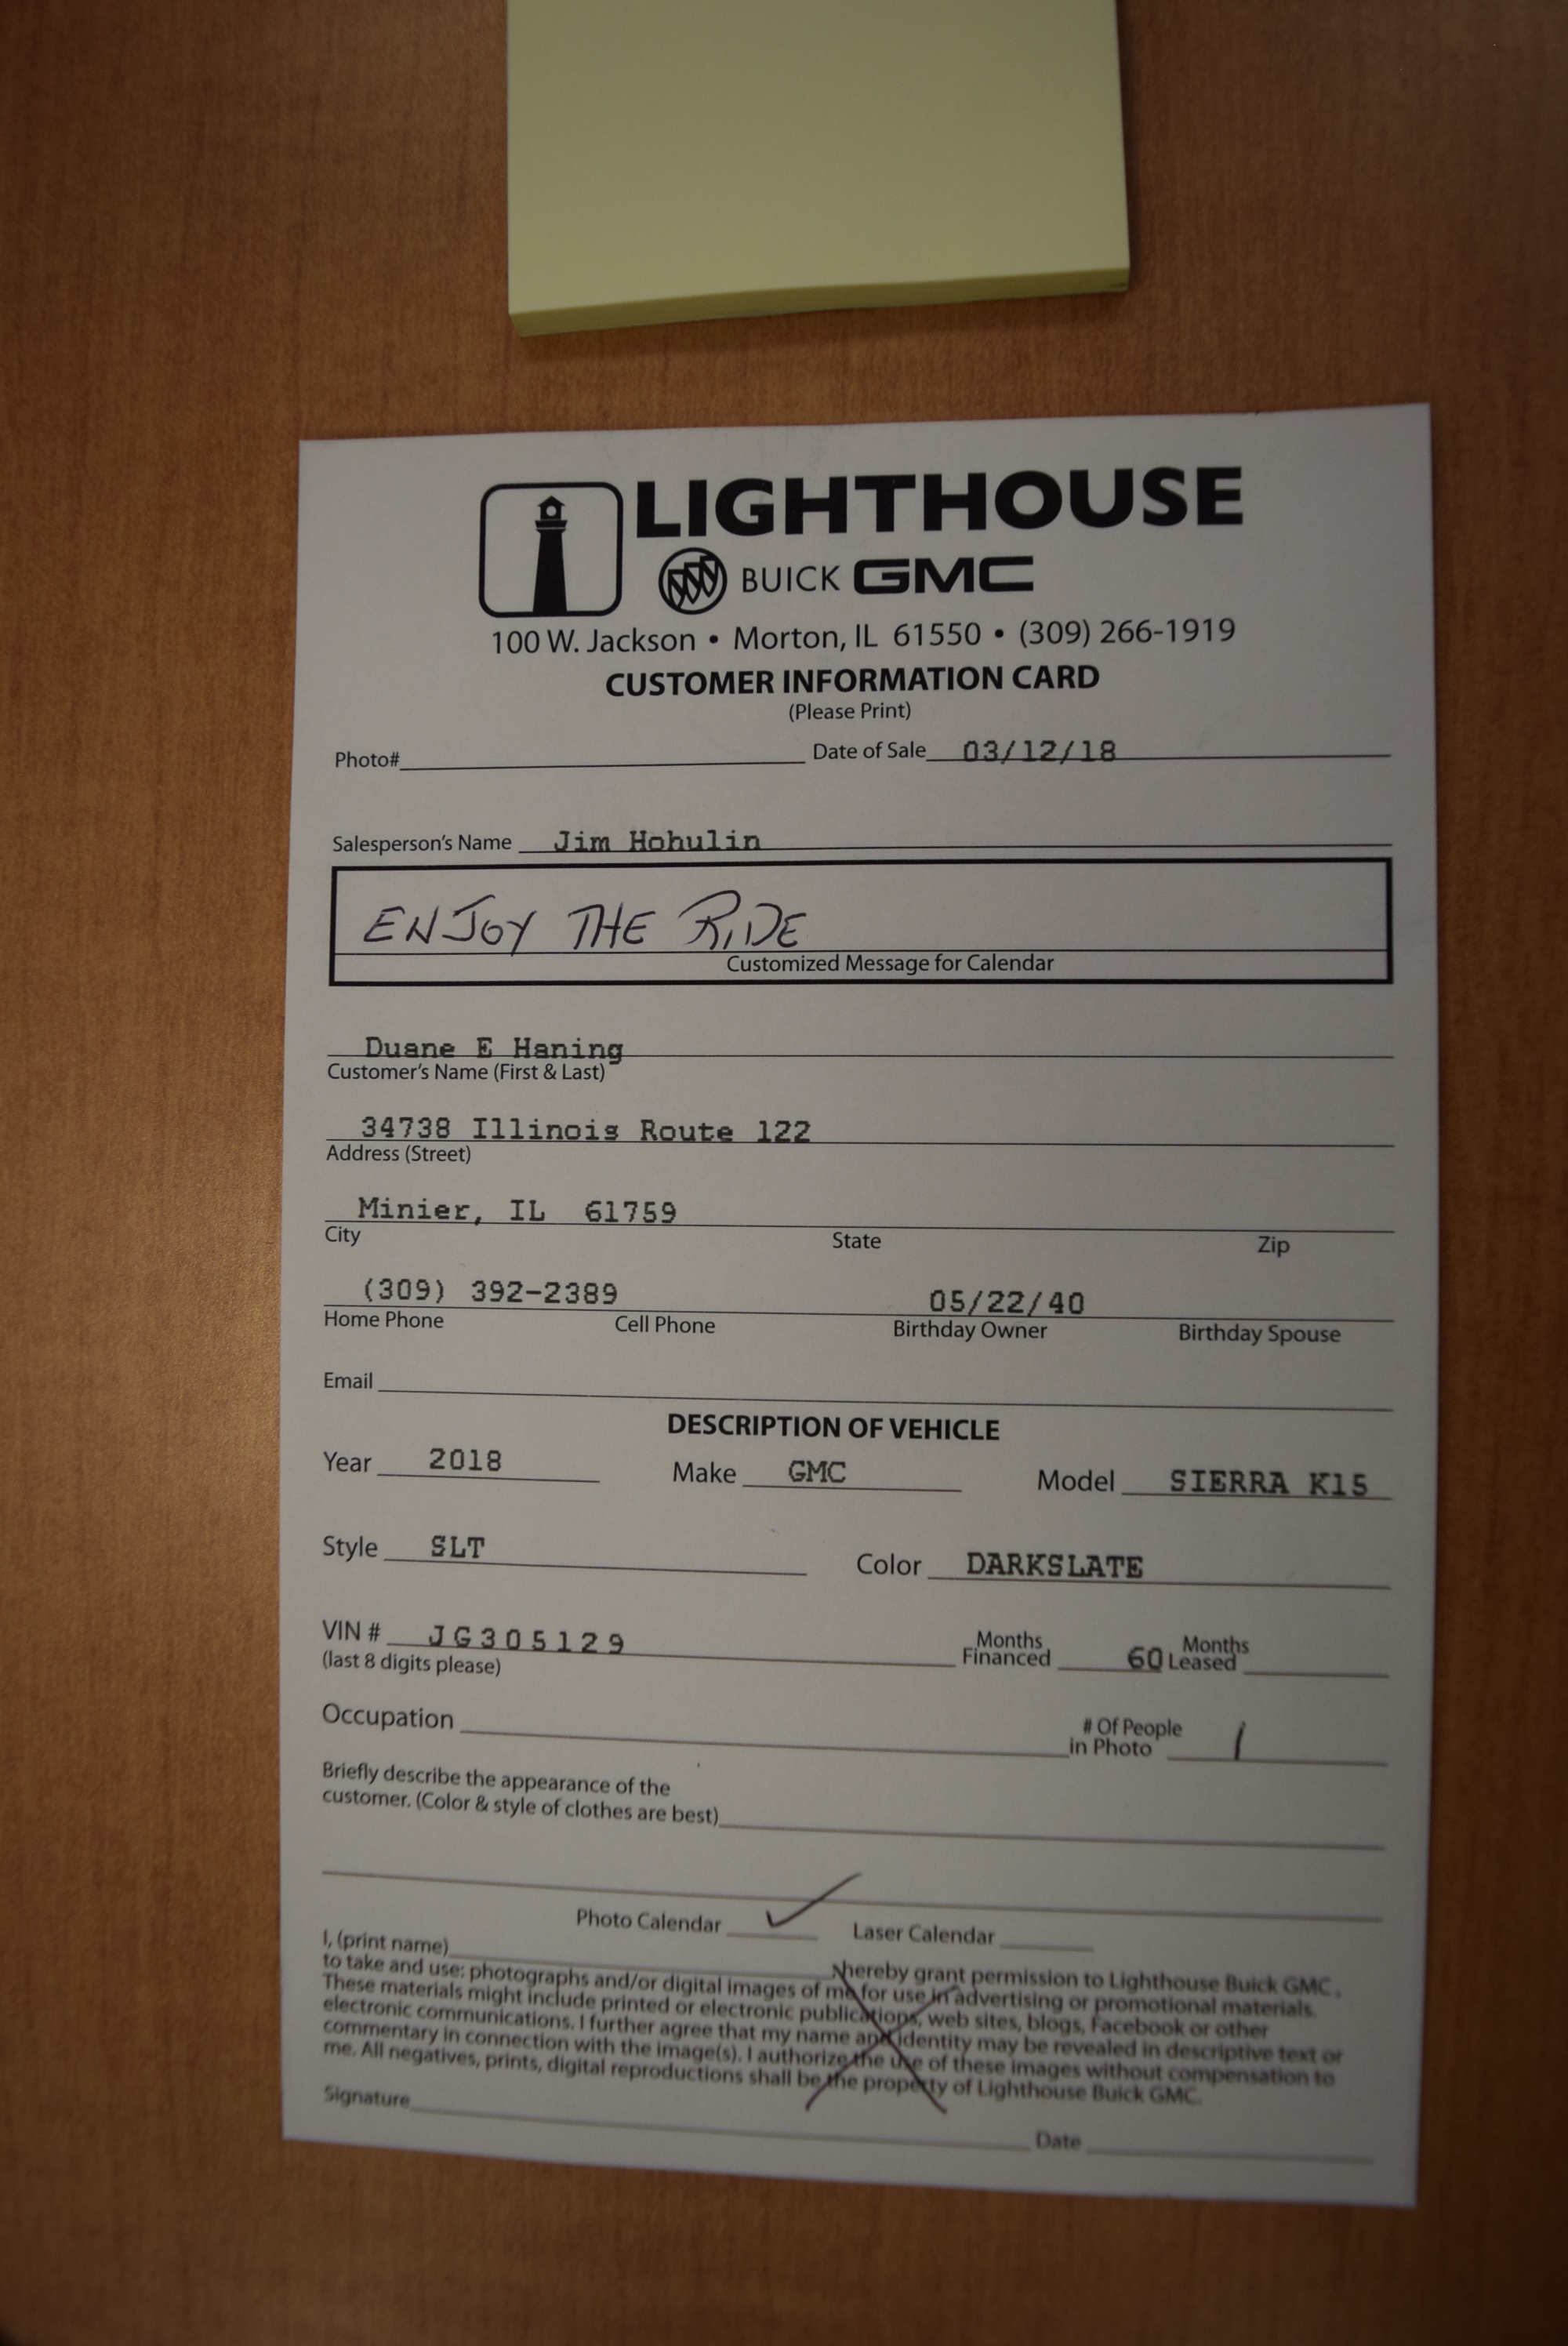 LIGHTHOUSE
BUICK GMC
100 W. Jackson • Morton, IL 61550 • (309) 266-1919
CUSTOMER INFORMATION CARD
(Please Print)
Photo# Date of Sale 03/12/18
Salesperson's Name Jim Hohulin
ENJOY THE RIDE
Customized Message for Calendar
Duane E Haning
Customer's Name (First & Last)
34738 Illinois Route 122
Address (Street)
Minier, IL 61759
City State Zip
(309) 392-2389 05/22/40
Home Phone Cell Phone Birthday Owner Birthday Spouse
Email
DESCRIPTION OF VEHICLE
Year 2018 Make GMC Model SIERRA K15
Style SLT Color DARKSLATE
VIN # JG305129 Months Financed 60 Months Leased
(last 8 digits please)
Occupation # Of People in Photo 1
Briefly describe the appearance of the
customer. (Color & style of clothes are best)
Photo Calendar ✓ Laser Calendar
I, (print name) hereby grant permission to Lighthouse Buick GMC,
to take and use: photographs and/or digital images of me for use in advertising or promotional materials.
These materials might include printed or electronic publications, web sites, blogs, Facebook or other
electronic communications. I further agree that my name and identity may be revealed in descriptive text or
commentary in connection with the image(s). I authorize the use of these images without compensation to
me. All negatives, prints, digital reproductions shall be the property of Lighthouse Buick GMC.
Signature Date